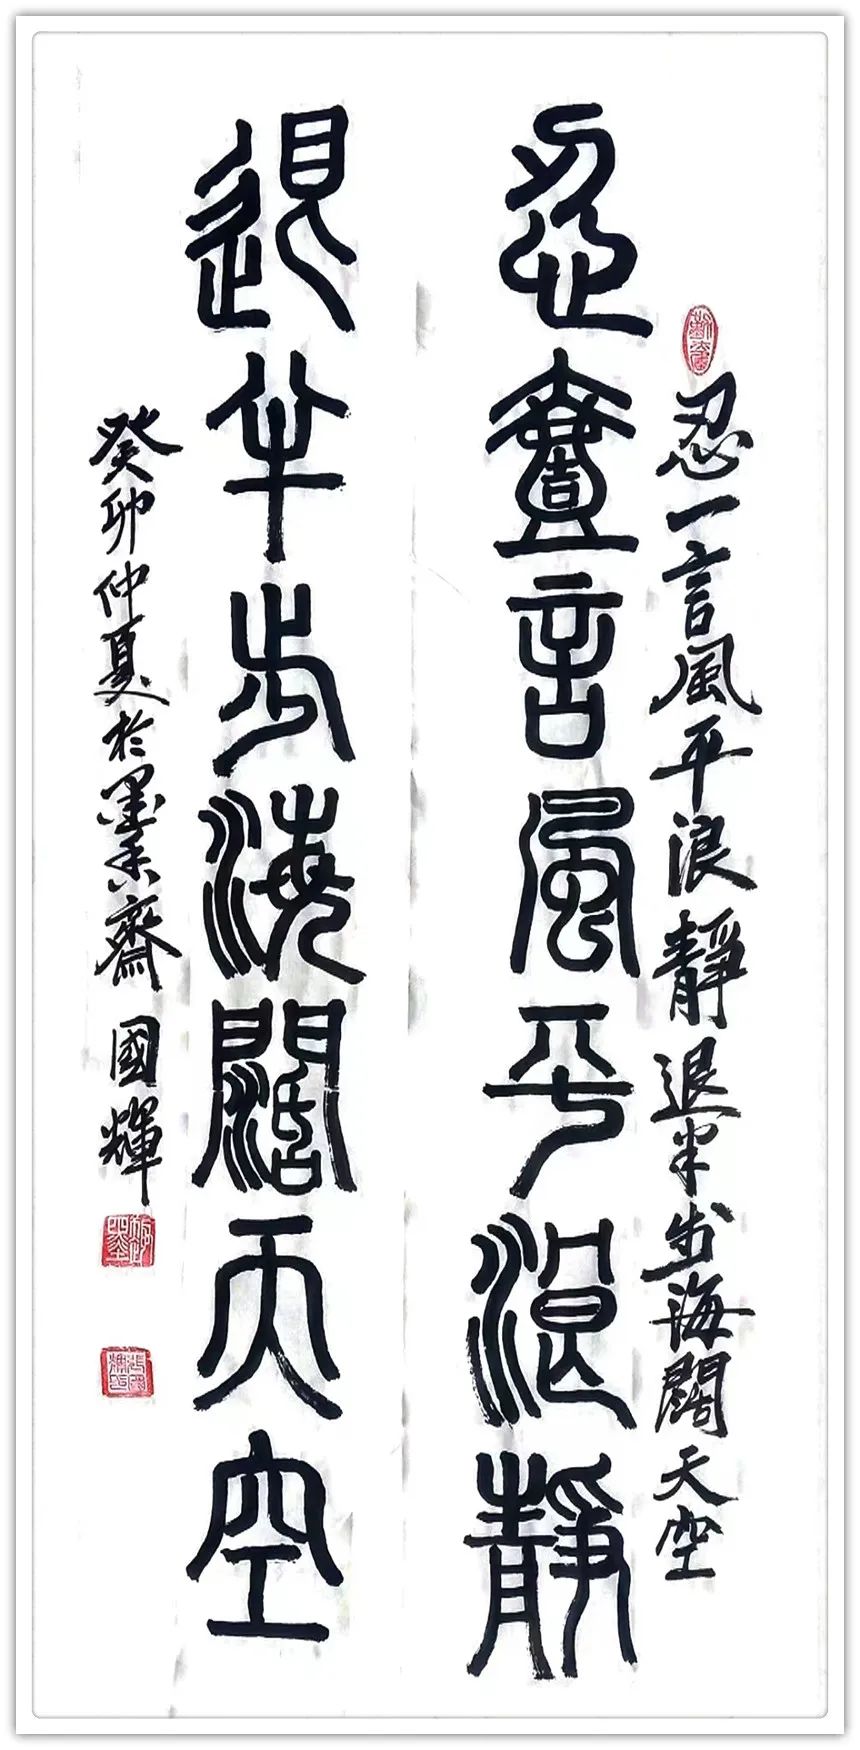 忍一言風平浪靜退半步海闊天空
忍壹言風平浪靜
退半步海闊天空
癸卯仲夏於墨香齋國輝